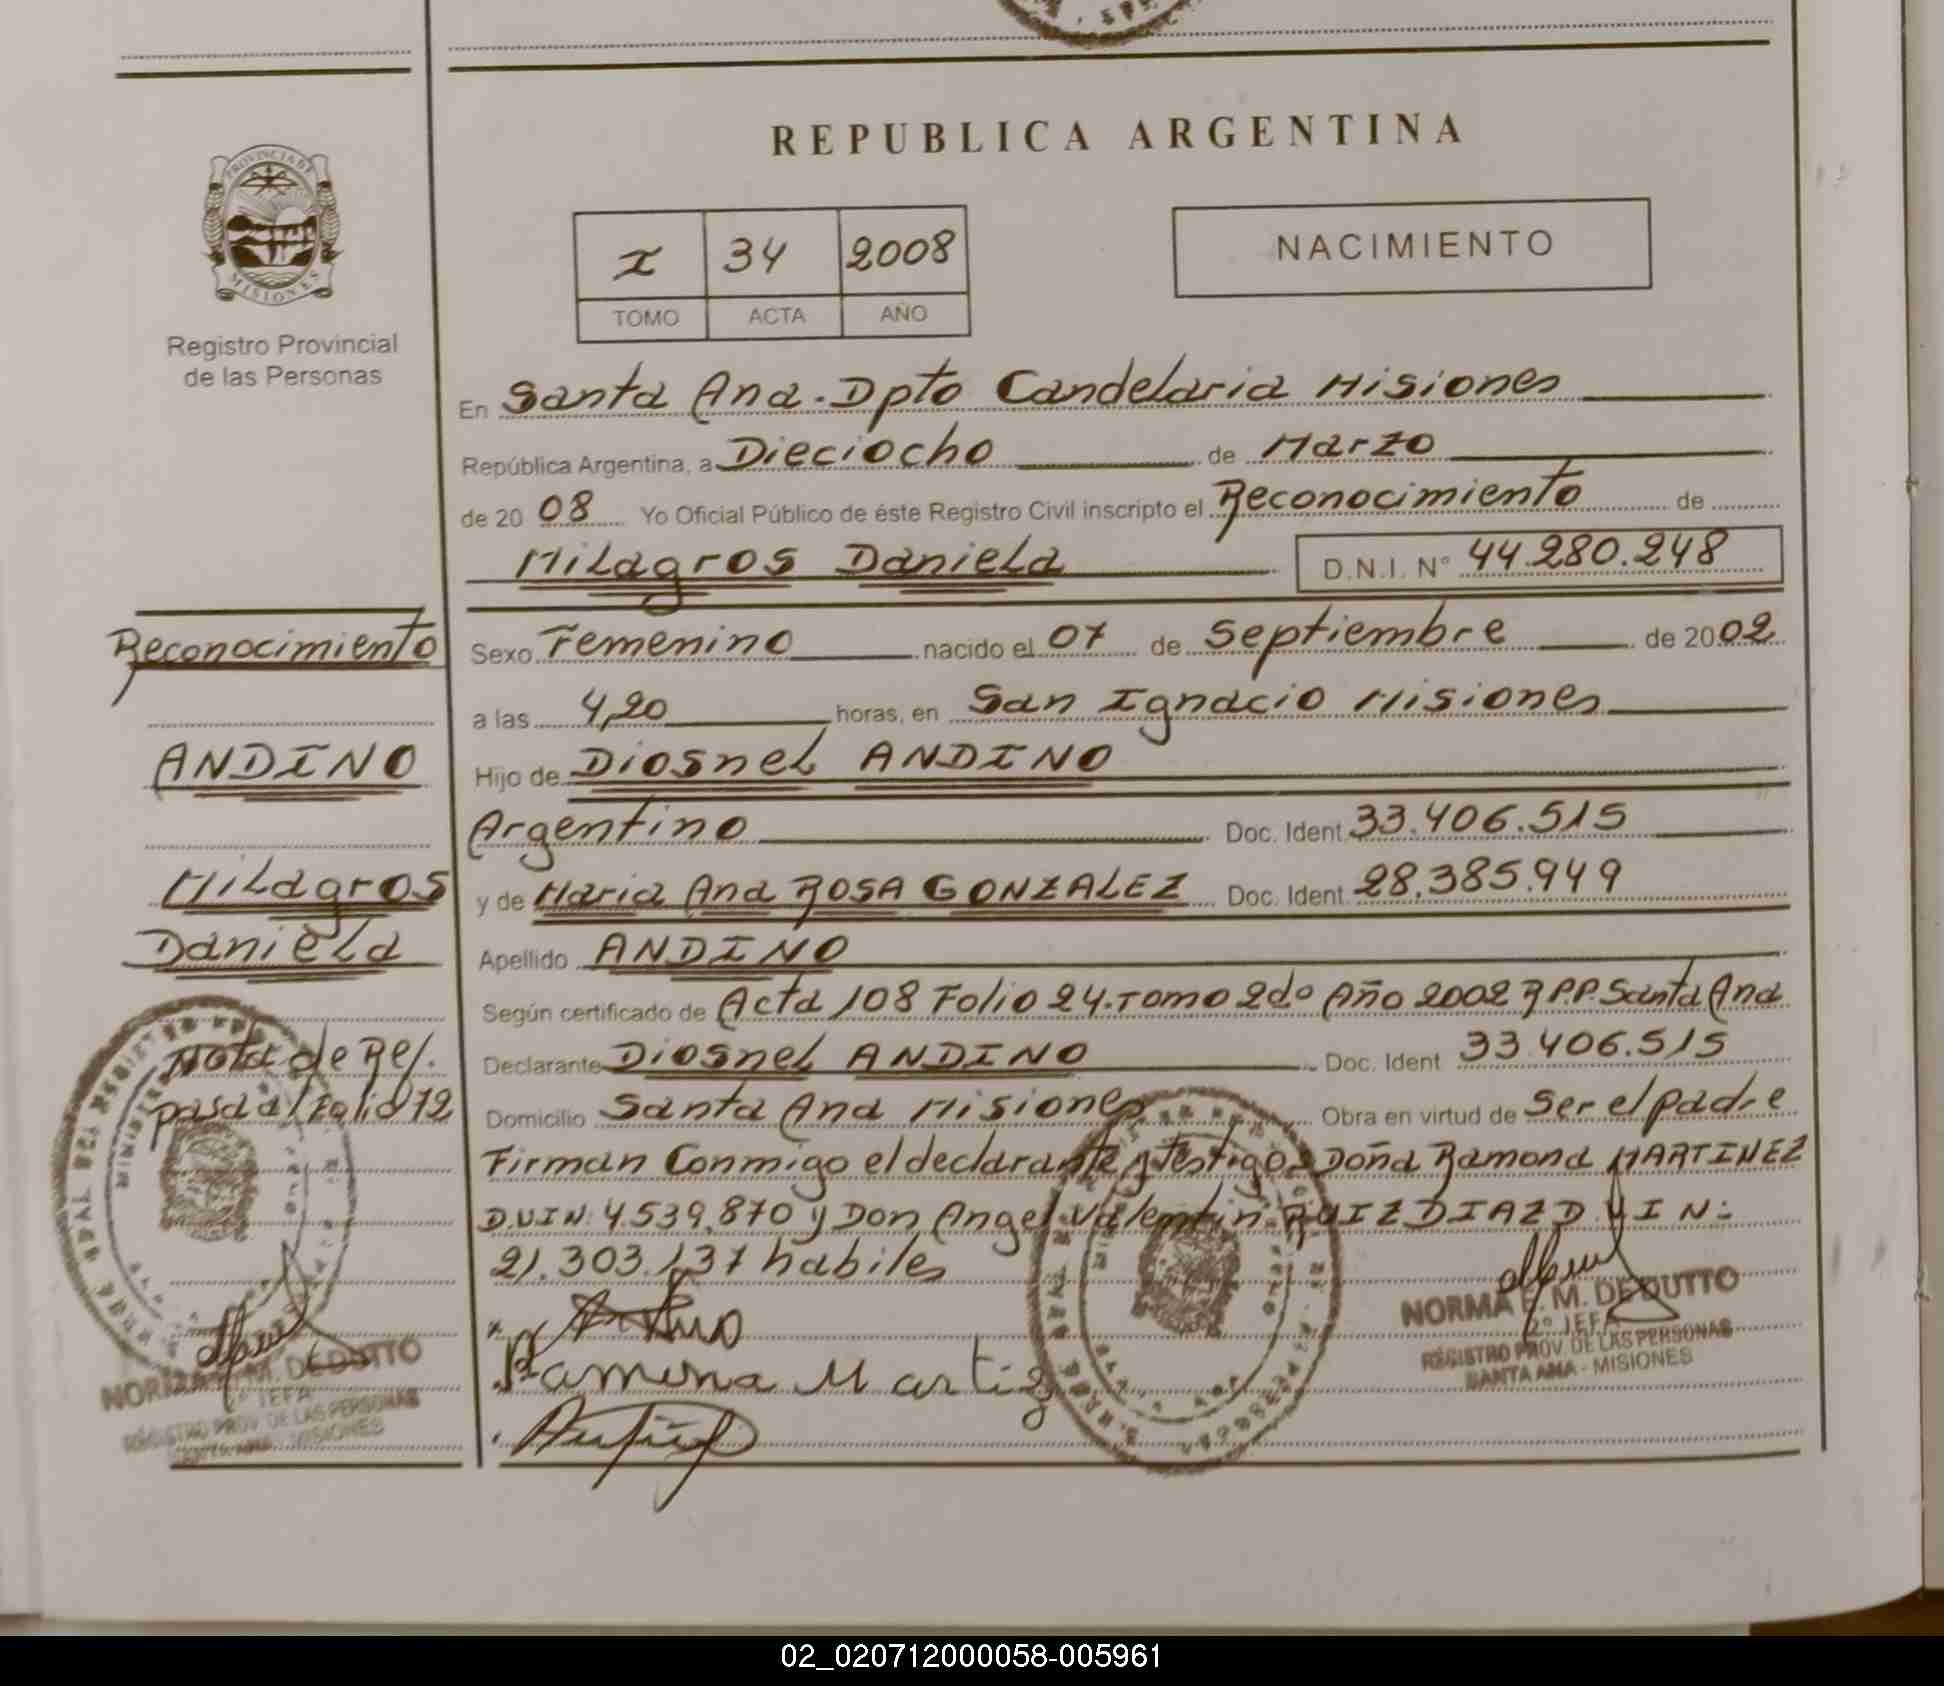 REPUBLICA ARGENTINA
PROVINCIA DE
MISIONES
Registro Provincial
de las Personas
I 34 2008
TOMO ACTA AÑO
NACIMIENTO
En Santa Ana. Dpto Candelaria Misiones
República Argentina, a Dieciocho de Marzo
de 2008 Yo Oficial Público de éste Registro Civil inscripto el Reconocimiento de
Milagros Daniela D.N.I. Nº 44.280.248
Sexo Femenino nacido el 07 de Septiembre de 2002
a las 4,20 horas, en San Ignacio Misiones
Hijo de Diosnel ANDINO
Argentino Doc. Ident. 33.406.515
y de Maria Ana ROSA GONZALEZ Doc. Ident. 28.385.949
Apellido ANDINO
Según certificado de Acta 108 Folio 24. Tomo 2do Año 2002 R.P.P. Santa Ana
Declarante Diosnel ANDINO Doc. Ident. 33 406.515
Domicilio Santa Ana Misiones Obra en virtud de Ser el padre
Firman Conmigo el declarante y testigos Doña Ramona MARTINEZ
D.U I N: 4.539.870 y Don Angel Valentin RUIZ DIAZ D U I N:
21.303.137 habiles
Ramona Martinez
NORMA M. DEDUTTO
2º JEFA
REGISTRO PROV. DE LAS PERSONAS
SANTA ANA - MISIONES
Reconocimiento
ANDINO
Milagros
Daniela
Nota de Ref.
pasa al Folio 72
NORMA M. DEDUTTO
2º JEFA
REGISTRO PROV. DE LAS PERSONAS
SANTA ANA - MISIONES
02_020712000058-005961